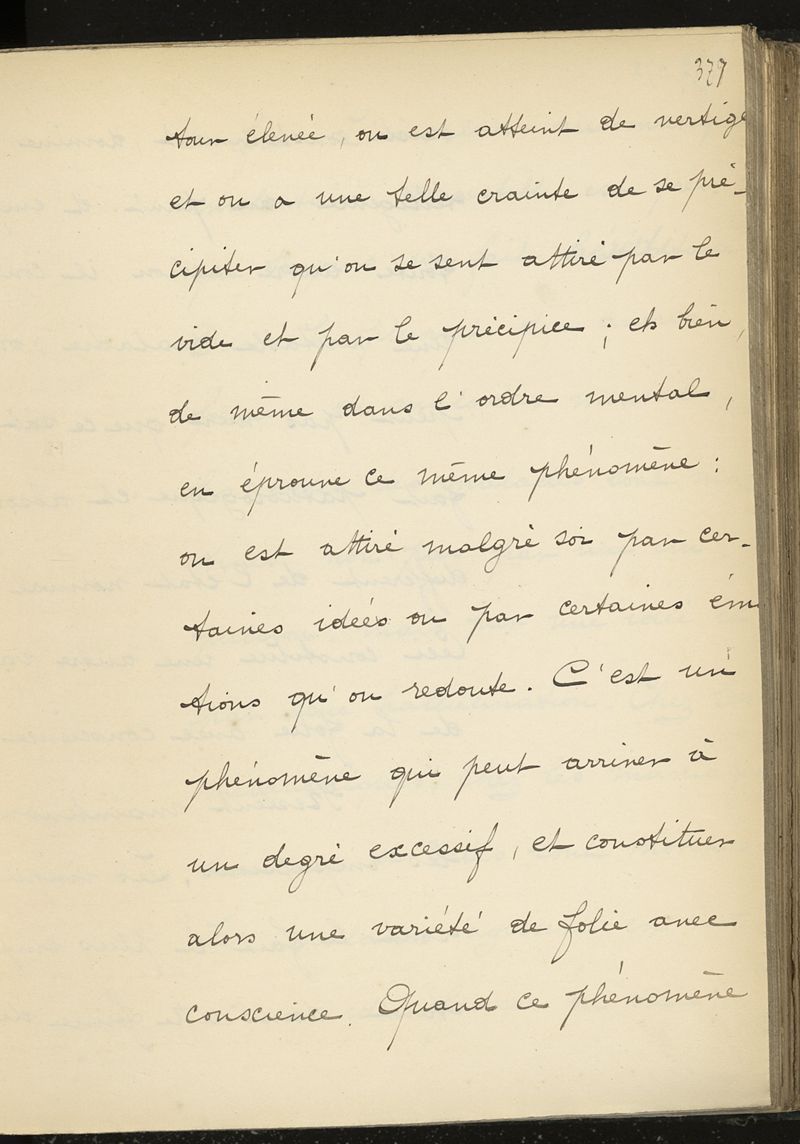 379
tour élevée, on est atteint de vertige
et on a une telle crainte de se pré-
cipiter qu'on se sent attiré par le
vide et par le précipice ; eh bien,
de même dans l'ordre mental,
on éprouve ce même phénomène :
on est attiré malgré soi par cer-
taines idées ou par certaines ém
tions qu'on redoute. C'est un
phénomène qui peut arriver à
un degré excessif, et constituer
alors une variété de folie avec
conscience. Quand ce phénomène